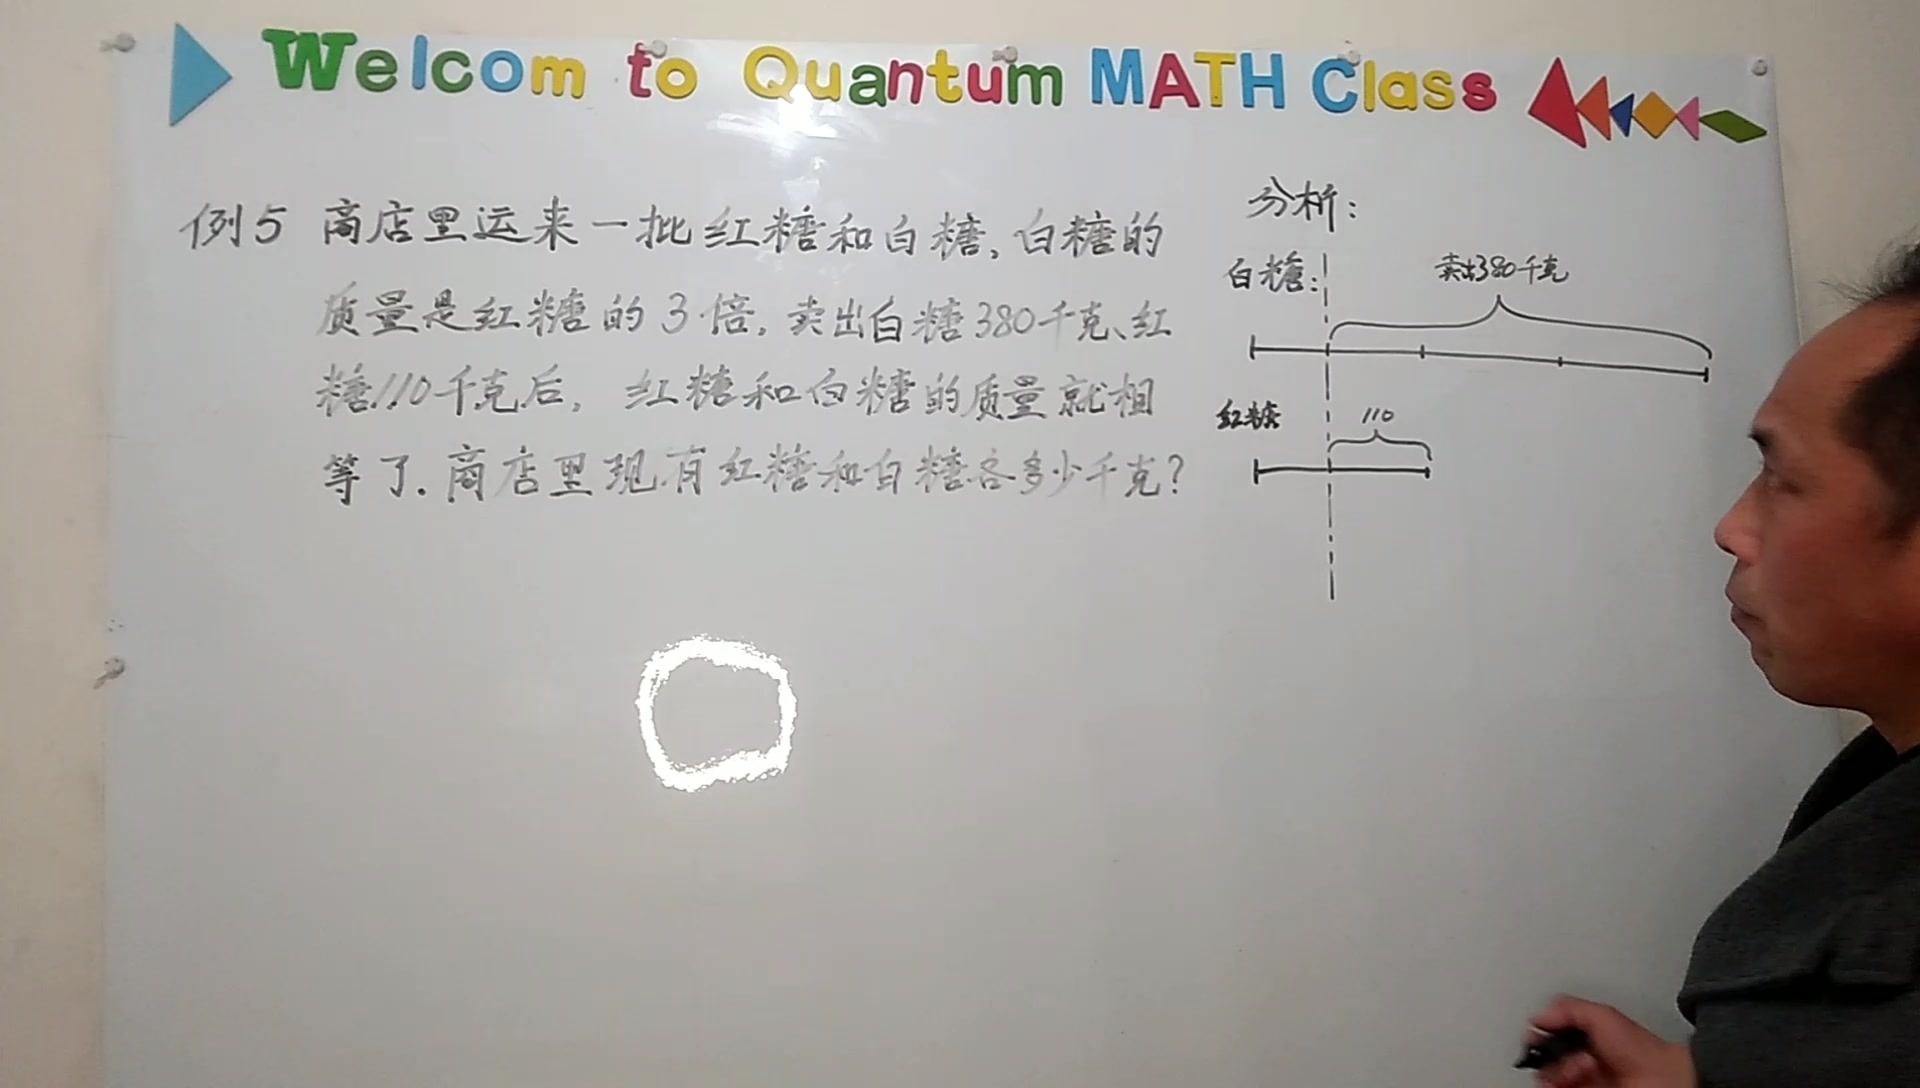 Welcom to Quantum MATH Class
例5 商店里运来一批红糖和白糖,白糖的
质量是红糖的3倍,卖出白糖380千克、红
糖110千克后,红糖和白糖的质量就相
等了.商店里现有红糖和白糖各多少千克?
分析:
白糖:
卖出380千克
红糖
110